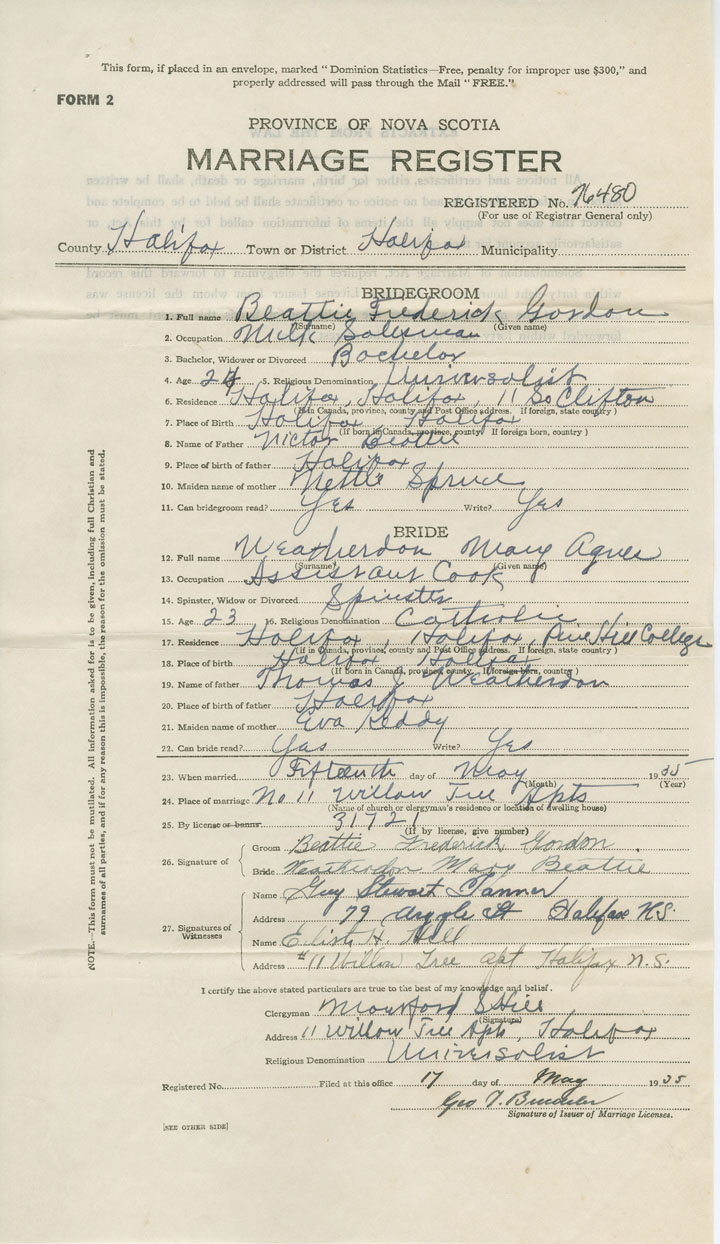 This form, if placed in an envelope, marked " Dominion Statistics—Free, penalty for improper use $300," and
properly addressed will pass through the Mail " FREE."
FORM 2
PROVINCE OF NOVA SCOTIA
MARRIAGE REGISTER
REGISTERED No. 76480
(For use of Registrar General only)
County Halifax Town or District Halifax Municipality
BRIDEGROOM
1. Full name Beattie Frederick Gordon
(Surname) (Given name)
2. Occupation Milk Salesman
3. Bachelor, Widower or Divorced Bachelor
4. Age 24 5. Religious Denomination Universalist
6. Residence Halifax, Halifax, 11 So Clifton
(If in Canada, province, county and Post Office address. If foreign, state country)
7. Place of Birth Halifax Halifax
(If born in Canada, province, county. If foreign born, country)
8. Name of Father Victor Beattie
9. Place of birth of father Halifax
10. Maiden name of mother Nettie
11. Can bridegroom read? Yes Write? Yes
BRIDE
12. Full name Weatherdon Mary Agnes
(Surname) (Given name)
13. Occupation Assistant Cook
14. Spinster, Widow or Divorced Spinster
15. Age 23 16. Religious Denomination Catholic
17. Residence Halifax, Halifax, Pine Hill College
(If in Canada, province, county and Post Office address. If foreign, state country)
18. Place of birth Halifax Halifax
(If born in Canada, province, county. If foreign born, country)
19. Name of father Thomas J Weatherdon
20. Place of birth of father Halifax
21. Maiden name of mother Eva Reddy
22. Can bride read? Yas Write? Yes
23. When married Fifteenth day of May 1935
(Month) (Year)
24. Place of marriage No 11 Willow Tree Apts
(Name of church or clergyman's residence or location of dwelling house)
25. By license or banns 31721
(If by license, give number)
26. Signature of
Groom Beattie Frederick Gordon.
Bride Weatherdon Mary Beattie
27. Signatures of Witnesses
Name Guy Stewart Tanner
Address 79 Argyle St Halifax N.S.
Name Edith H. Hill
Address #11 Willow Tree apt Halifax N.S.
I certify the above stated particulars are true to the best of my knowledge and belief.
Clergyman Hill
(Signature)
Address 11 Willow Tree Apts, Halifax
Religious Denomination Universalist
Registered No. Filed at this office 17 day of May 1935
Geo
Signature of Issuer of Marriage Licenses.
[SEE OTHER SIDE]
NOTE.—This form must not be mutilated. All information asked for is to be given, including full Christian and
surnames of all parties, and if for any reason this is impossible, the reason for the omission must be stated.